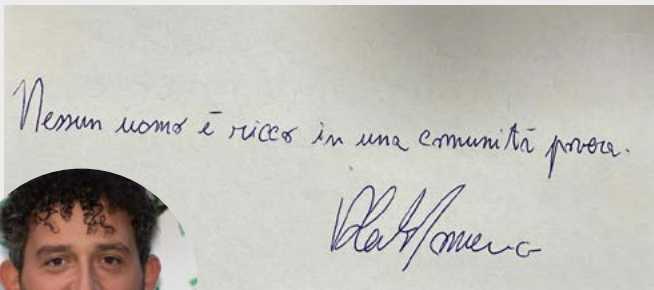 Nessun uomo è ricco in una comunità povera.